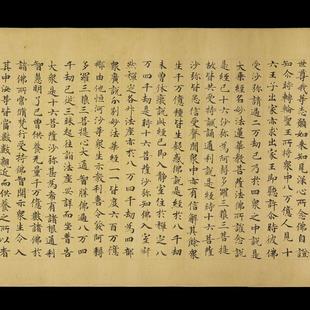 世尊我等志願如來知見深心所念佛自證
知尒時轉輪聖王所將衆中八万億人見十
六王子出家亦求出家王即聽許尒時彼佛
受沙弥請過二万劫已乃於四衆之中說是
大乘經名妙法蓮華教菩薩法佛所護念說
是經已十六沙弥為阿耨多羅三藐三菩提
故皆共受持諷誦通利說是經時十六菩薩
沙弥皆悉信受聲聞衆中亦有信解其餘衆
生千万億種皆生疑惑佛說是經於八千劫
未曾休廢說此經已即入靜室住於禪定八
万四千劫是時十六菩薩沙弥知佛入室寂
然禪定各昇法座亦於八万四千劫為四部
衆廣說分別妙法華經一一皆度六百万億
那由他恒河沙等衆生示教利喜令發阿耨
多羅三藐三菩提心大通智勝佛過八万四
千劫已從三昧起往詣法座安詳而坐普告
大衆是十六菩薩沙弥甚為希有諸根通利
智慧明了已曾供養無量千万億數諸佛於
諸佛所常修梵行受持佛智開示衆生令入
其中汝等皆當數數親近而供養之所以者